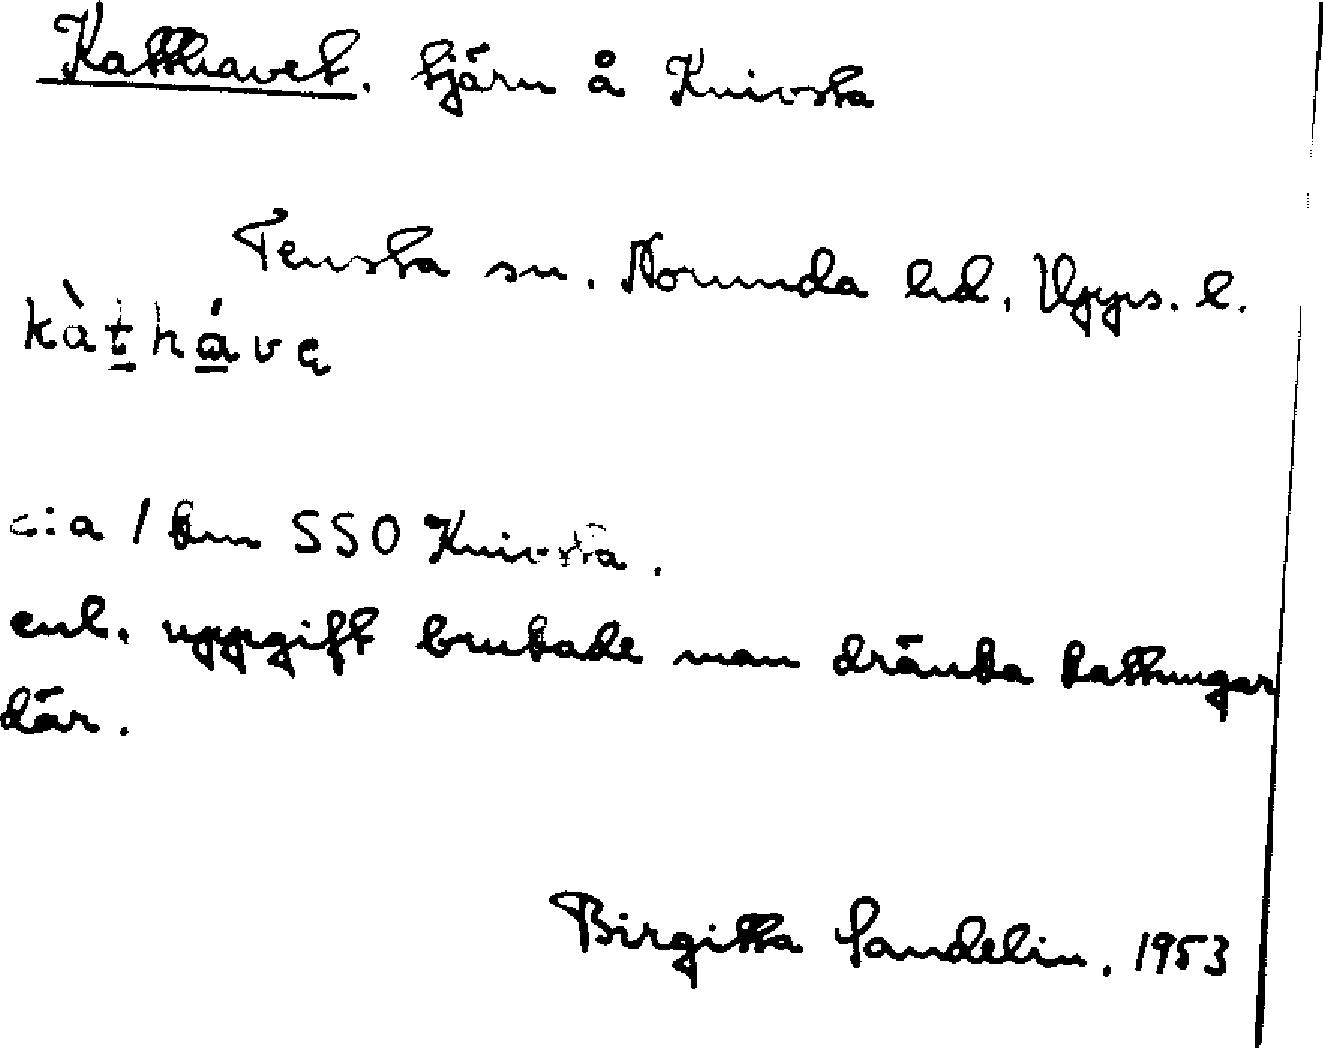 Katthavet. tjärn å Knivsta
Tensta sn. Norunda hd, Upps. l.
kàt̲há̲vę
c:a 1 km SSO Knivsta.
enl. uppgift brukade man dränka kattungar
där.
Birgitta Sandelin. 1953